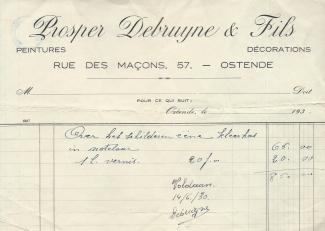 Prosper Debruyne & Fils
PEINTURES DÉCORATIONS
RUE DES MAÇONS, 57, — OSTENDE
M Doit
POUR CE QUI SUIT:
Ostende, le 193
Over het schilderen eener kleerkas 65.00
in notelaar
1 l. vernis. 20/00 20.00
85.00
Voldaan
14/6/30.
Debruyne